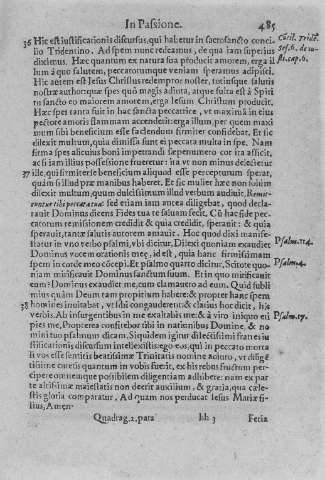 In Passione. 485
36 Hic est iustificationis discursus, qui habetur in sacrosancto conci-
lio Tridentino. Ad spem nunc redeamus, de qua iam superius
diximus. Hæc quantum ex natura sua producit amorem, erga il-
lum à quo salutem, peccatorumque veniam speramus adipisci.
Hic autem est Iesus Christus redemptor noster, totiusque salutis
nostræ author: que spes quò magis adiuta, atque fulta est à Spiri
tu sancto eo maiorem amorem, erga Iesum Christum producit.
Hæc spes tanta fuit in hac sancta peccatrice, vt maximã in eius
pectore amoris flammam accenderit: erga illum, per quem maxi
mum sibi beneficium esse faciendum firmiter confidebat. Et sic
dilexit multum, quia dimissa sunt ei peccata multa in spe. Nam
firma spes alicuius boni impetrandi sepenumero cor ita afficit,
ac si iam illius possessione frueretur: ita vt non minus delectetur
37 ille, qui firmiter se beneficium aliquod esse percepturum sperat,
quàm si illud præ manibus haberet. Et sic mulier hæc non solùm
dilexit multum, quum dulcissimum illud verbum audiuit, Remit-
tuntur tibi peccata tua: sed etiam iam antea diligebat, quod decla-
rauit Dominus dicens Fides tua te saluam fecit. Cũ hac fide pec-
catorum remissionem credidit & quia credidit, sperauit: & quia
sperauit, tantæ salutis autorem amauit. Hoc quod dixi manife-
statur in vno verbo psalmi, vbi dicitur, Dilexi quoniam exaudiet
Dominus vocem orationis meę, id est, quia hanc firmissimam
spem in corde meo cœcepi. Et psalmo quarto dicitur, Scitote quo-
niam mirificauit Dominus sanctum suum. Et in quo mirificauit
eum? Dominus exaudiet me, cum clamauero ad eum. Quid subli-
mius quàm Deum tam propitium habere: & propter hanc spem
38 homines inuitabat, vt sibi congauderent: & clarius hoc dicit, his
verbis. Ab insurgentibus in me exaltabis me: & à viro iniquo eri
pies me, Propterea confitebor tibi in nationibus Domine, & no
mini tuo psalmum dicam. Siquidem igitur dilectissimi fratres iu
stificationis discursum intellexistis: ego eos, qui in peccato morta
li vos esse sentitis beatissimæ Trinitatis nomine
tissime
cipere omnemque possibilem diligentiam adhibere: nam ex par
te altissimæ maiestatis non deerit auxilium, & gratia, qua cæle-
stis gloria comparatur, Ad quam nos perducat Iesus Mariæ fi-
lius, Amen.
Quadrag. 2. para Hh 3 Feria
Cũcil. Trid.
sef. 6. de iu-
st. cap. 6.
Psalm. 114.
Psalm. 4.
Psalm. 17.